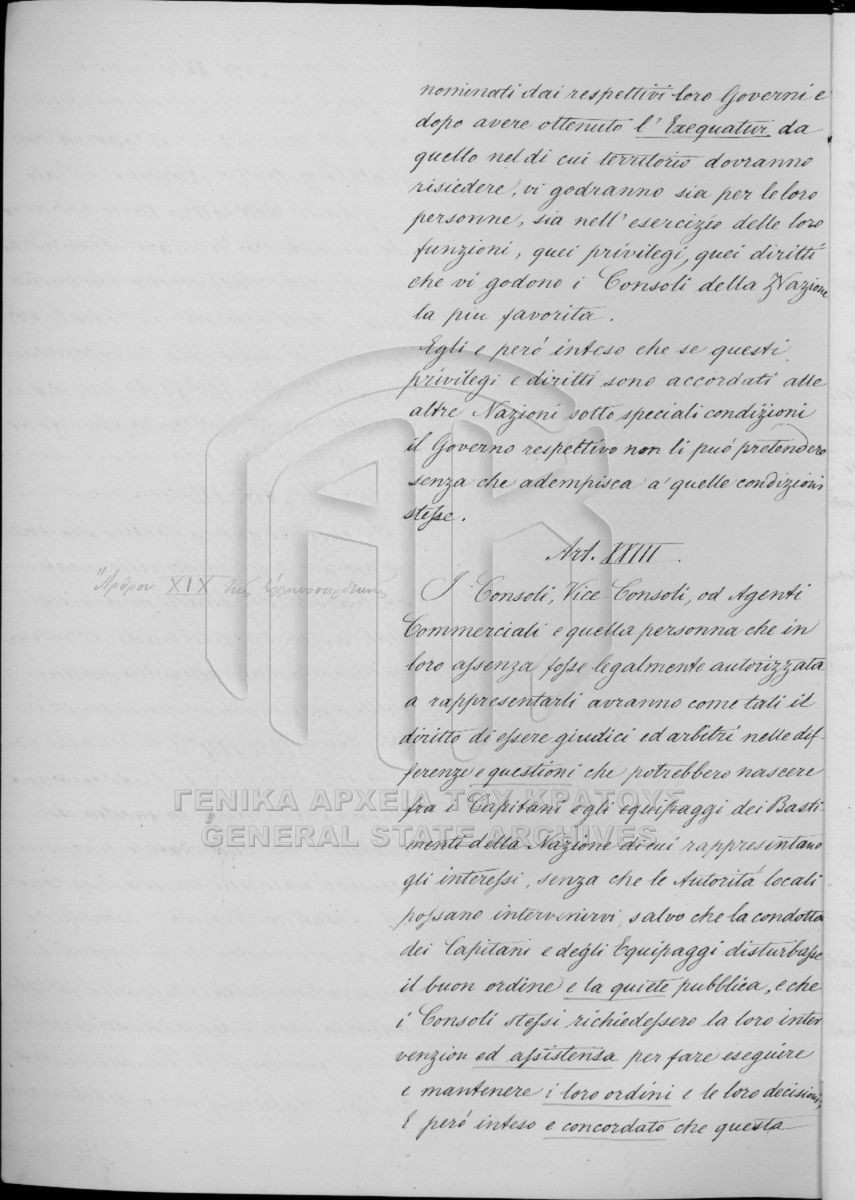 nominati dai respettivi loro Governi e
dopo avere ottenuto l'Exequatur da
quello nel di cui territorio dovranno
risiedere, vi godranno sia per le loro
personne, sia nell'esercizio delle loro
funzioni, quei privilegi, quei diritti
che vi godono i Consoli della Nazione
la piu favorita.
Egli e però inteso che se questi
privilegi e diritti sono accordati alle
altre Nazioni sotto speciali condizioni
il Governo respettivo non li può pretendere
senza che adempisca a' quelle condizioni
stesse.
Art. XXIII.
Ἄρθρον XIX τῆς
I Consoli, Vice Consoli, od Agenti
Commerciali e quella personna che in
loro assenza fosse legalmente autorizzata
a rappresentarli avranno come tali il
diritto di essere giudici ed arbitri nelle dif
ferenze e questioni che potrebbero nascere
fra i Capitani e gli equipaggi dei Basti
menti della Nazione di cui rappresentano
gli interessi, senza che le Autorità locali
possano intervenirvi, salvo che la condotta
dei Capitani e degli Equipaggi disturbasse
il buon ordine e la quiete pubblica, e che
i Consoli stessi richiedessero la loro inter
venzion ed assistensa per fare eseguire
e mantenere i loro ordini e le loro decisioni,
E però inteso e concordato che questa
ΓΕΝΙΚΑ ΑΡΧΕΙΑ ΤΟΥ ΚΡΑΤΟΥΣ
GENERAL STATE ARCHIVES